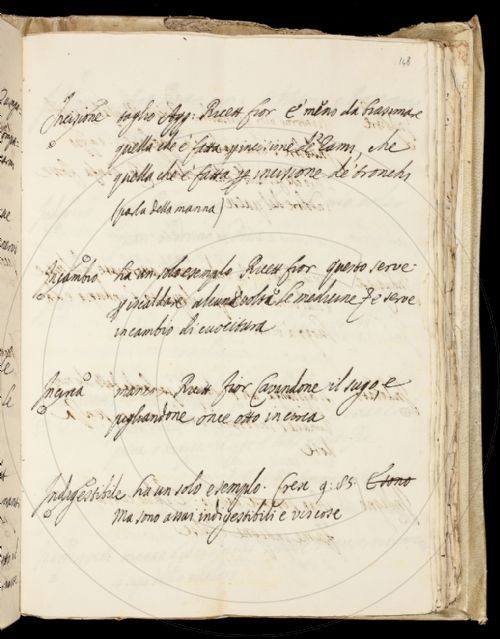 148
Incisione taglio Agg: Ricett fior è meno da biasimare
quella che è fatta p incisione de Rami, che
quella che è fatta p incisione de tronchi
(parla della manna)
Incambio ha un solo esempio Ricett fior questo serve
p iscaldare alcune volte le medicine e serve
incambio di cuocitura
Incirca manca. Ricett fior Cavandone il sugo, e
pigliandone once otto incirca
Indigestibile ha un solo esempio. Cresc 9: 85. E sono
Ma sono assai indigestibili e viscose